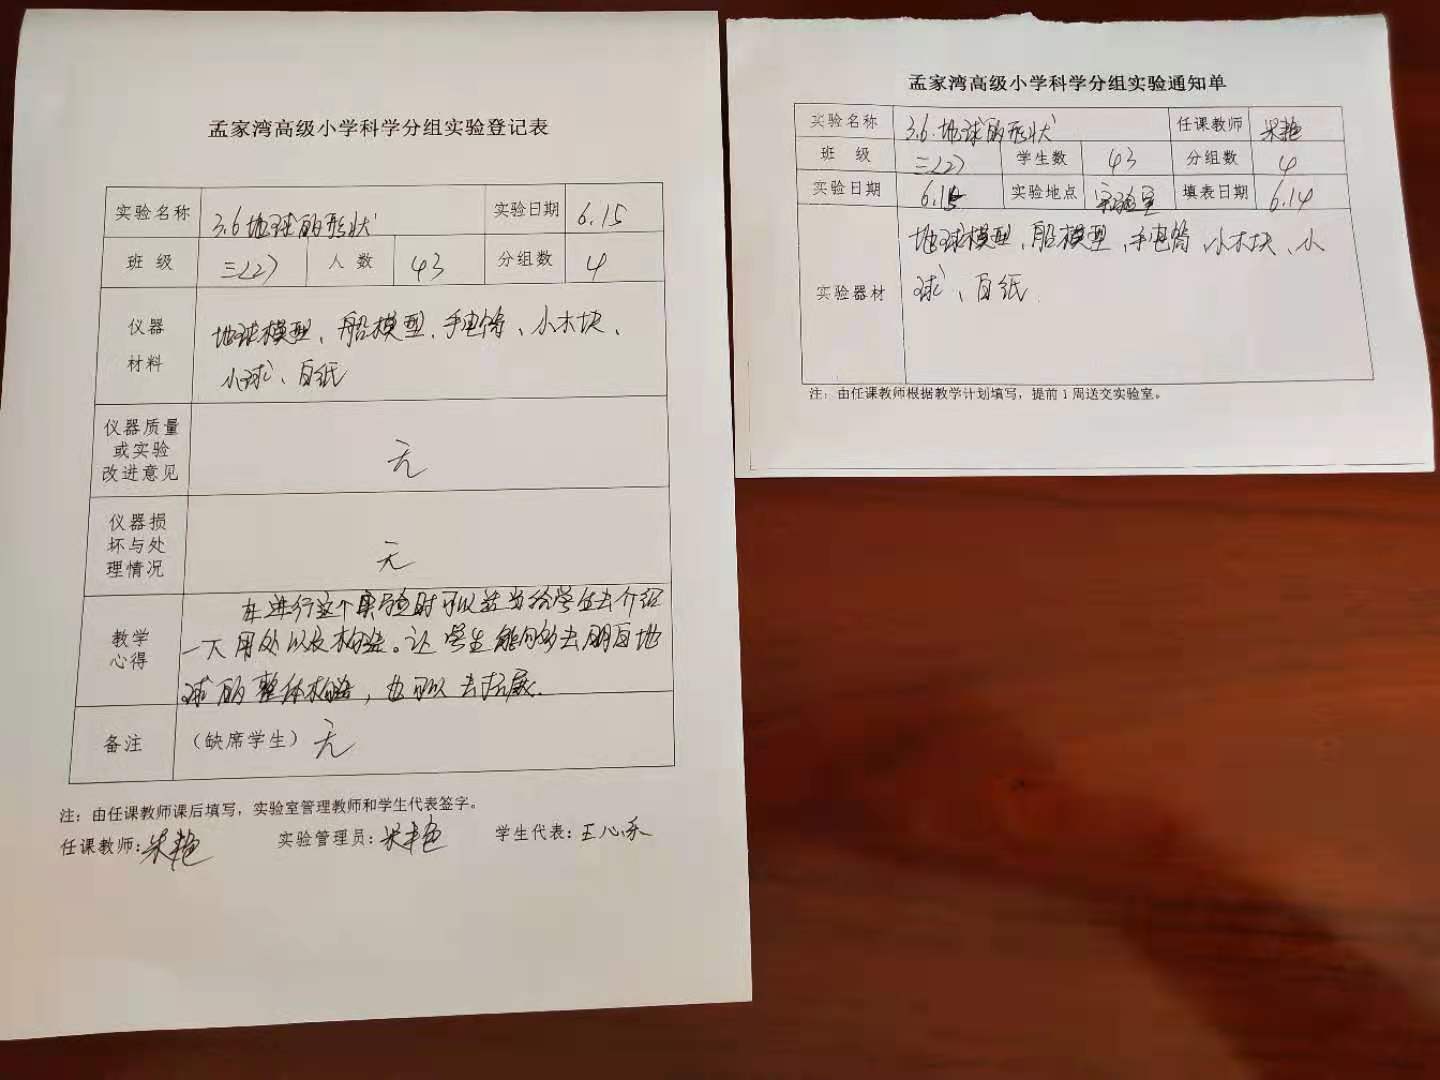 孟家湾高级小学科学分组实验登记表
实验名称 3.6地球的形状 实验日期 6.15
班 级 三(2) 人 数 43 分组数 4
仪器
材料
地球模型、船模型、手电筒、小木块、
小球、白纸
仪器质量
或实验
改进意见
无
仪器损
坏与处
理情况
无
教学
心得
在进行这个实验时可以适当给学生去介绍
一下用处以及构造。让学生能够去明白地
球的整体构造，也可以去拓展.
备注 (缺席学生) 无
注：由任课教师课后填写，实验室管理教师和学生代表签字。
任课教师: 艳 实验管理员: 艳 学生代表: 王心
孟家湾高级小学科学分组实验通知单
实验名称 3.6.地球的形状 任课教师 艳
班 级 三(2) 学生数 43 分组数 4
实验日期 6.15 实验地点 实验室 填表日期 6.14
实验器材
地球模型、船模型、手电筒、小木块、小
球、白纸.
注：由任课教师根据教学计划填写，提前1周送交实验室。